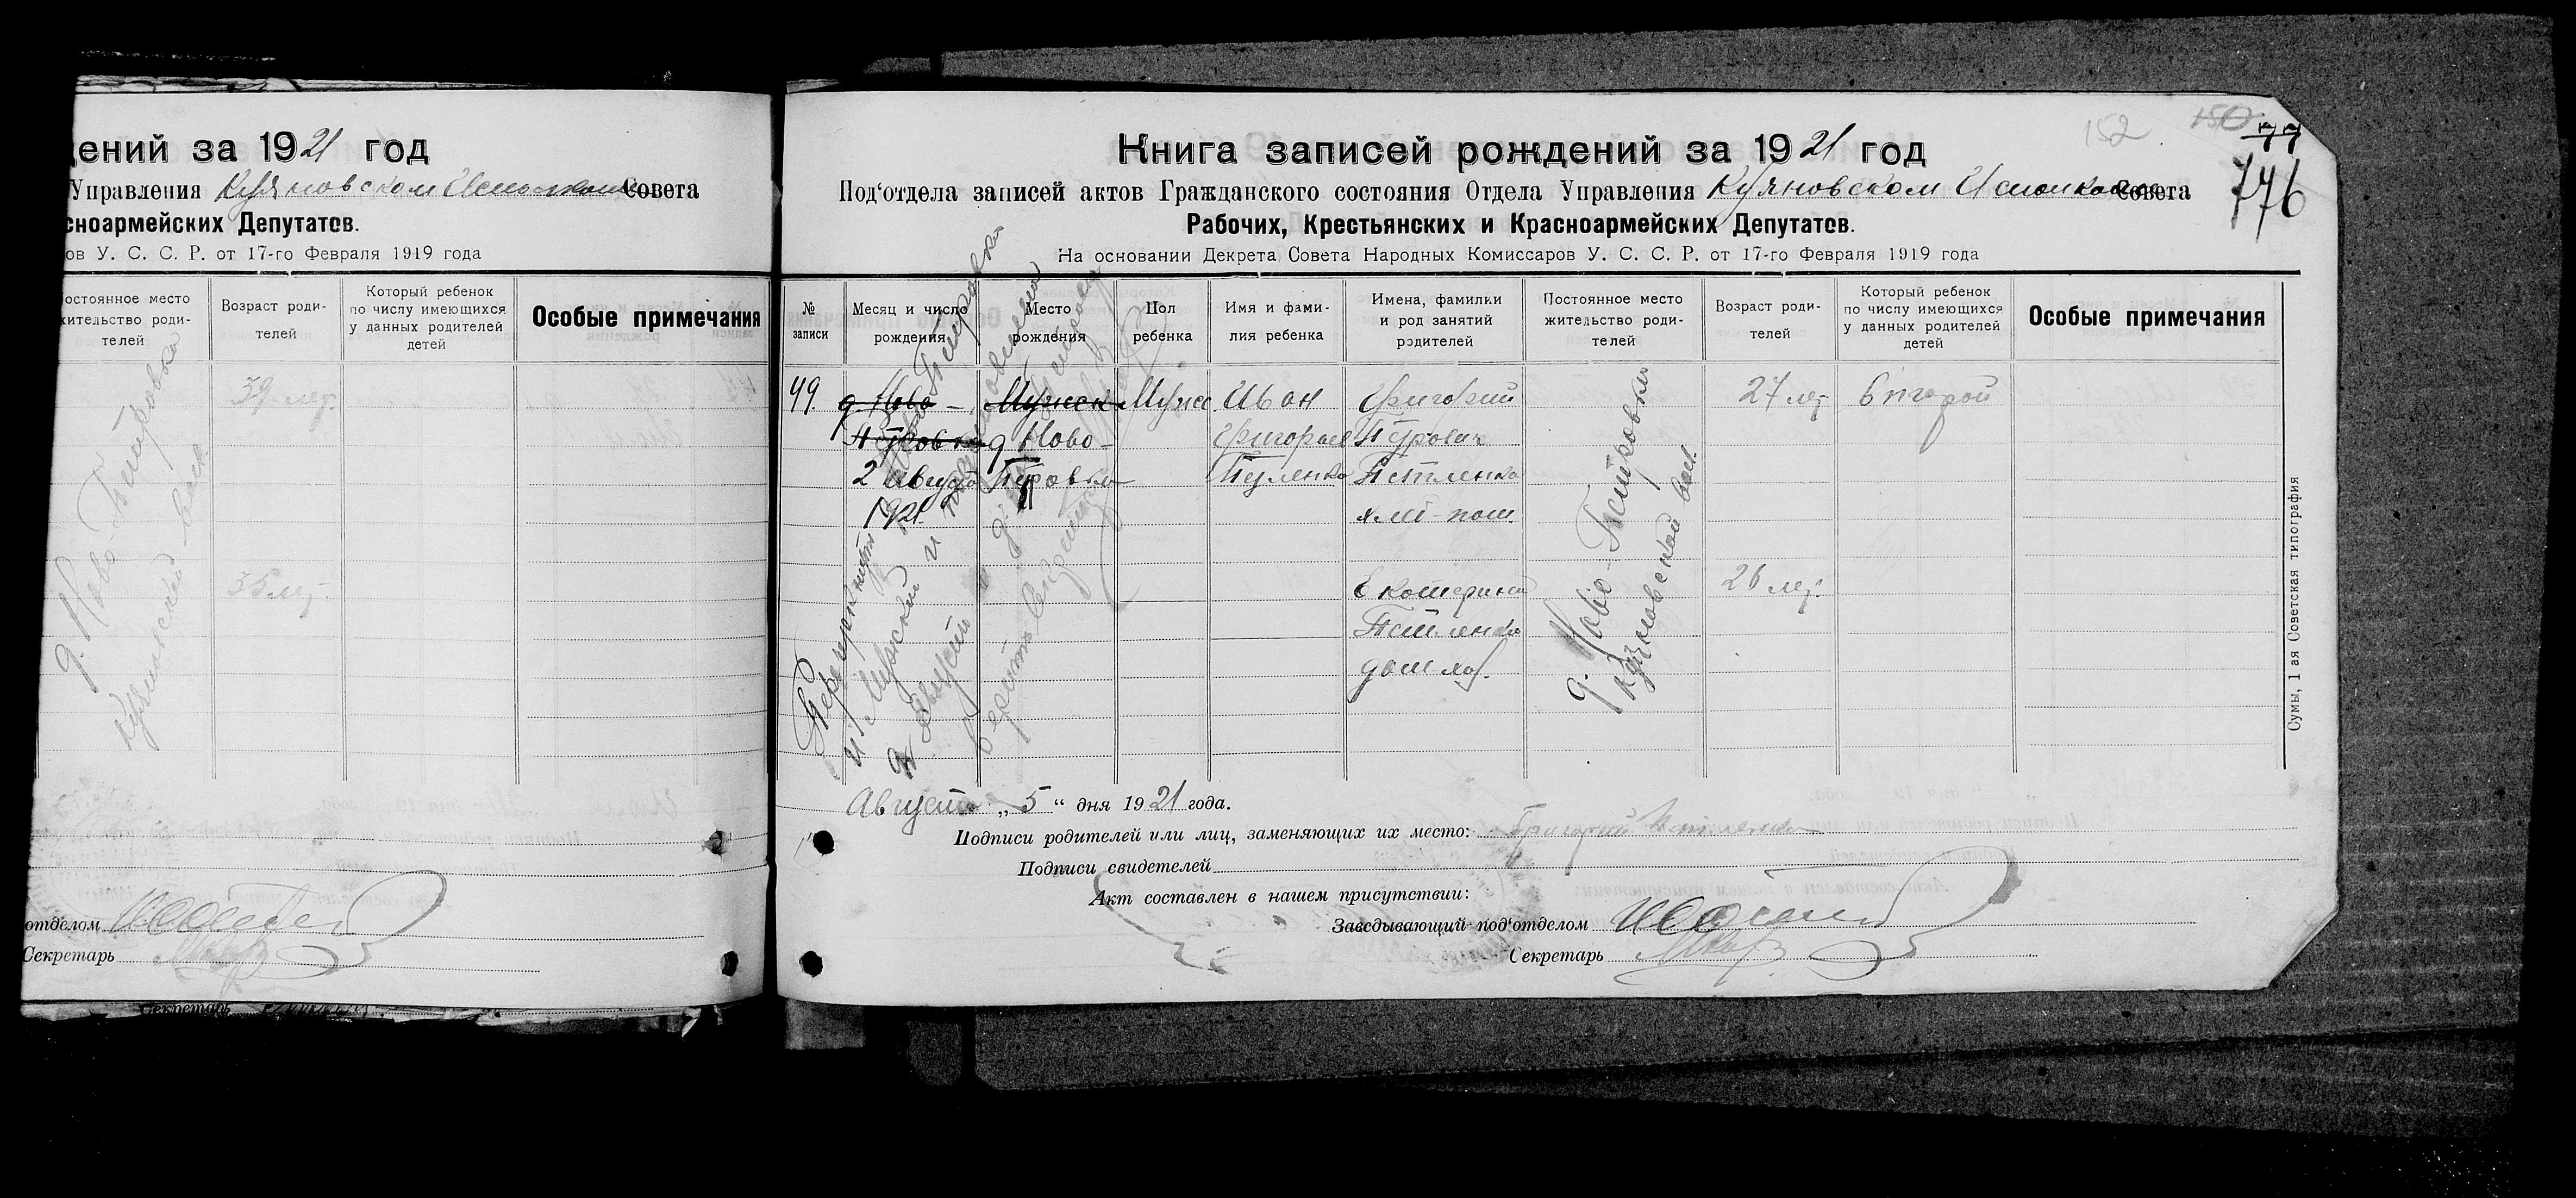 дений за 1921 год
Управления Куяновском Исполкома Совета
сноармейских Депутатов.
ов У. С. С. Р. от 17-го Февраля 1919 года
остоянное место
жительство роди-
телей
Возраст роди-
телей
Который ребенок
по числу имеющихся
у данных родителей
детей
Особые примечания
39 лет.
35 лет.
д. Ново-Петровка
отделом
Секретарь
Секретарь
152
150
77
776
Книга записей рождений за 1921 год
Под'отдела записей актов Гражданского состояния Отдела Управления Куяновском Исполкома Совета
Рабочих, Крестьянских и Красноармейских Депутатов.
На основании Декрета Совета Народных Комиссаров У. С. С. Р. от 17-го Февраля 1919 года
№
записи
Месяц и число
рождения
Место
рождения
Пол
ребенка
Имя и фами-
лия ребенка
Имена, фамилки
и род занятий
родителей
Постоянное место
жительство роди-
телей
Возраст роди-
телей
Который ребенок
по числу имеющихся
у данных родителей
детей
Особые примечания
99.
д. Ново-
Петровка
2 Август
1921
Мужск
д Ново-
Петровка
Мужс
Иван
Григорьев
Григорий
Петрович
Петленко
хлеб-паш.
Екатерина
Петленко
дом. хоз.
д. Ново-Петровки
Куяновской вол.
27 лет
26 лет.
второй
Август „5“ дня 1921 года.
Подписи родителей или лиц, заменяющих их место: Григорий Петленко
Подписи свидетелей
Акт составлен в нашем присутствии:
Заведывающий под'отделом
Секретарь
Сумы, 1 ая Советская типография